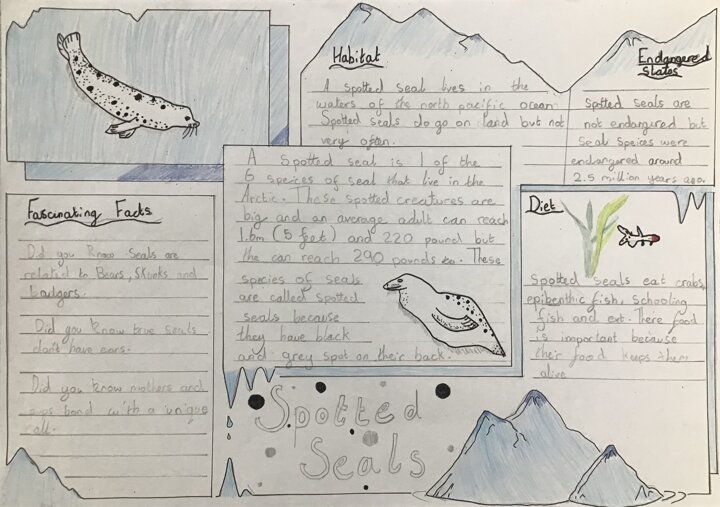 Habitat
A spotted seal lives in the
waters of the north pacific ocean
Spotted seals do go on land but not
very often.
Endangered
States
Spotted seals are
not endangered but
Seal Speices were
endangered around
2.5 million years ago.
A spotted seal is 1 of the
6 speices of seal that live in the
Arctic. These spotted creatures are
big and an average adult can reach
1.6m (5 feet) and 220 pound but
the can reach 290 pounds to. These
species of seals
are called spotted
seals because
they have black
and grey spot on their back.
Fascinating Facts
Did you know Seals are
related to Bears, Skunks and
badgers.
Did you know true seals
don't have ears.
Did you know mothers and
pups bond with a unique
call.
Diet
Spotted Seals eat crabs,
epibenthic fish, schooling
fish and ect. There food
is important because
their food keeps them
alive
Spotted
Seals